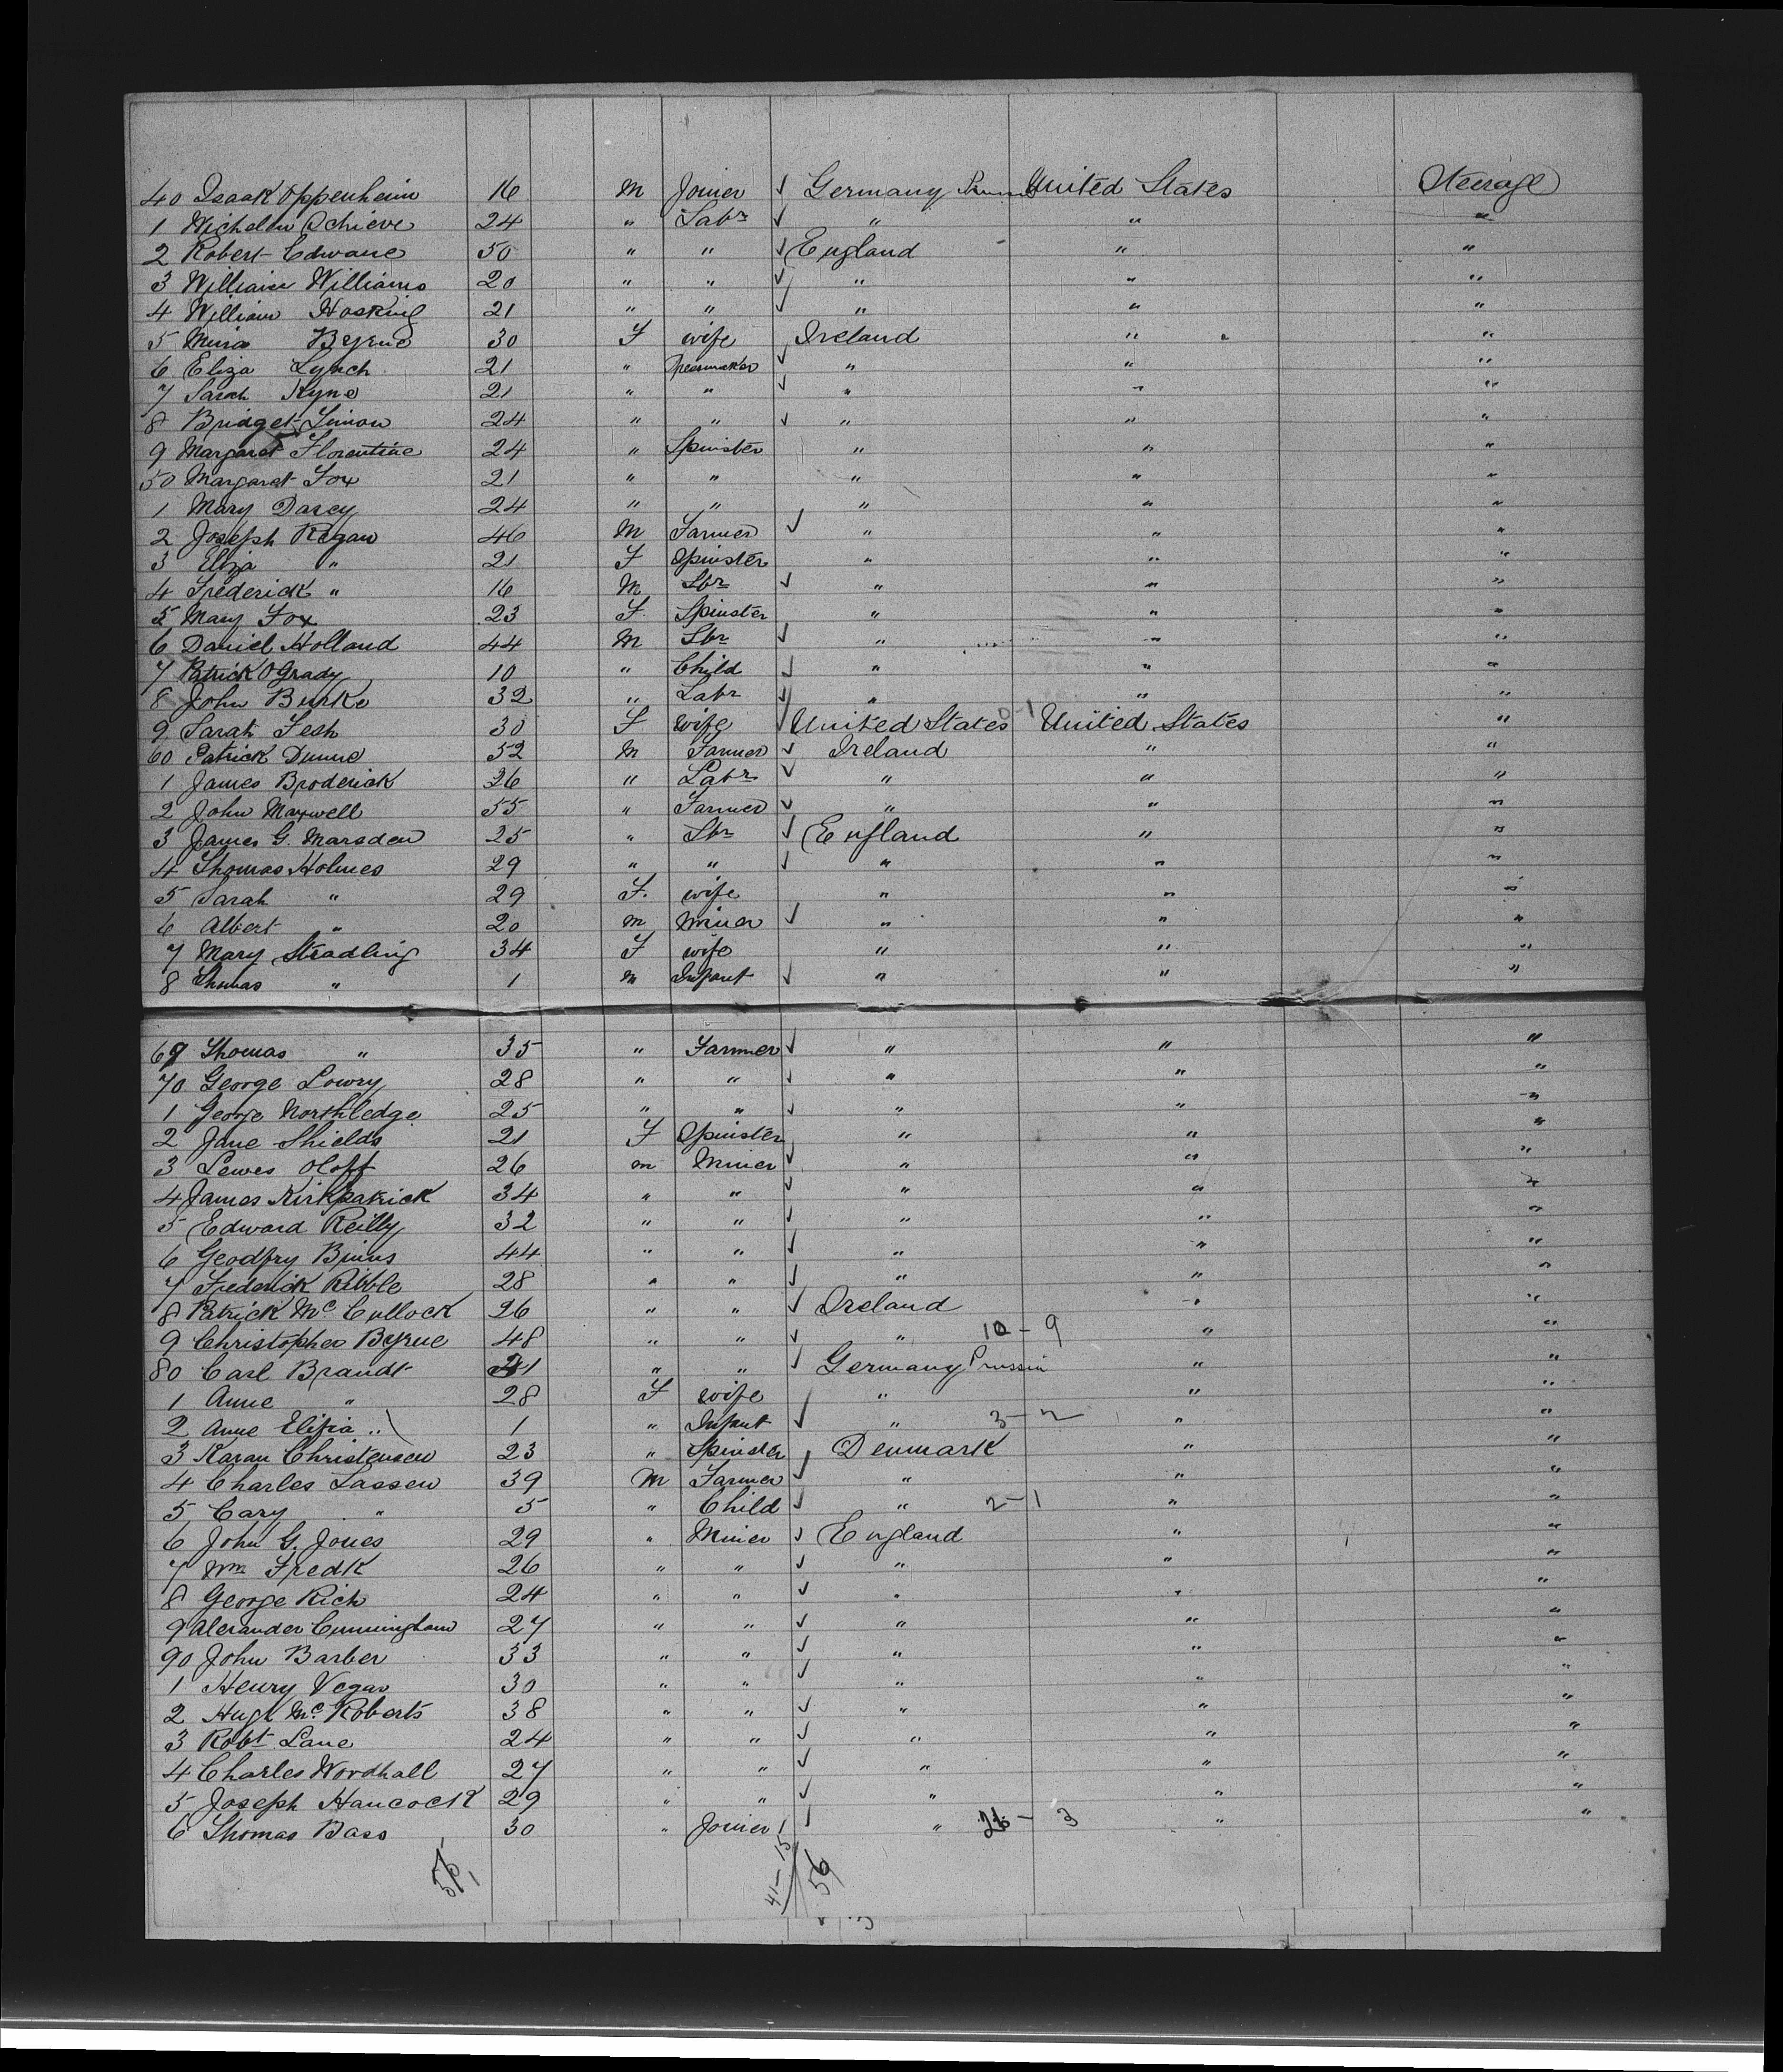 40 Isaak Oppenheim 16 M Joiner ✓ Germany United States Steerage
1 Schieve 24 " Labr ✓ " " "
2 Robert Edware 50 " " ✓ England " "
3 William Williams 20 " " ✓ " " "
4 William Hosking 21 " " ✓ " " "
5 Byrne 30 F wife Ireland " "
6 Eliza Lynch 21 " Dressmaker ✓ " " "
7 Sarah Kyne 21 " " ✓ " " "
8 Bridget 24 " " ✓ " " "
9 Margaret Florentine 24 " Spinster " " "
50 Margaret Fox 21 " " " " "
1 Mary Darcy 24 " " " " "
2 Joseph Regan 46 M Farmer ✓ " " "
3 Eliza " 21 F Spinster " " "
4 Frederick " 16 M Lbr ✓ " " "
5 Mary Fox 23 F Spinster " " "
6 Daniel Holland 44 M Lbr ✓ " " "
7 Patrick O Grady 10 " Child ✓ " " "
8 John Burke 32 " Labr ✓ " " "
9 Sarah Fesh 30 F wife ✓ United States 0-1 United States "
60 Patrick Dunne 52 M Farmer ✓ Ireland " "
1 James Broderick 26 " Labr ✓ " " "
2 John Maxwell 55 " Farmer ✓ " " "
3 James G. Marsden 25 " Lbr ✓ England " "
4 Thomas Holmes 29 " " ✓ " " "
5 Sarah " 29 F. wife " " "
6 Albert " 20 m Miner ✓ " " "
7 Mary Stradling 34 F wife " " "
8 Thomas " 1 m Infant ✓ " " "
69 Thomas " 35 " Farmer ✓ " " "
70 George Lowry 28 " " ✓ " " "
1 George Northledge 25 " " ✓ " " "
2 Jane Shields 21 F Spinster " " "
3 Lewes Oloff 26 m Miner ✓ " " "
4 James Kirkpatrick 34 " " ✓ " " "
5 Edward Reilly 32 " " ✓ " " "
6 Geodfry Binns 44 " " ✓ " " "
7 Frederick Ribble 28 " " ✓ " " "
8 Patrick Mc Cullock 26 " " ✓ Ireland " "
9 Christopher Byrne 48 " " ✓ " 10-9 " "
80 Carl Brandt 41 " " ✓ Germany Prussia " "
1 Anne " 28 F wife " " "
2 Anne " 1 " Infant ✓ " 3-2 " "
3 Karan Christensen 23 " Spinster Denmark " "
4 Charles Lassen 39 M Farmer ✓ " " "
5 Cary " 5 " Child ✓ " 2-1 " "
6 John G. Jones 29 " Miner ✓ England " "
7 Wm Fredk 26 " " ✓ " " "
8 George Rich 24 " " ✓ " " "
9 Alexander Cunningham 27 " " ✓ " " "
90 John Barber 33 " " ✓ " " "
1 Henry Vegas 30 " " ✓ " " "
2 Hugh Mc Roberts 38 " " ✓ " " "
3 Robt Lane 24 " " ✓ " " "
4 Charles Wordhall 27 " " ✓ " " "
5 Joseph Hancock 29 " " ✓ " " "
6 Thomas Bass 30 " Joiner ✓ " 26-3 " "
41-15
56